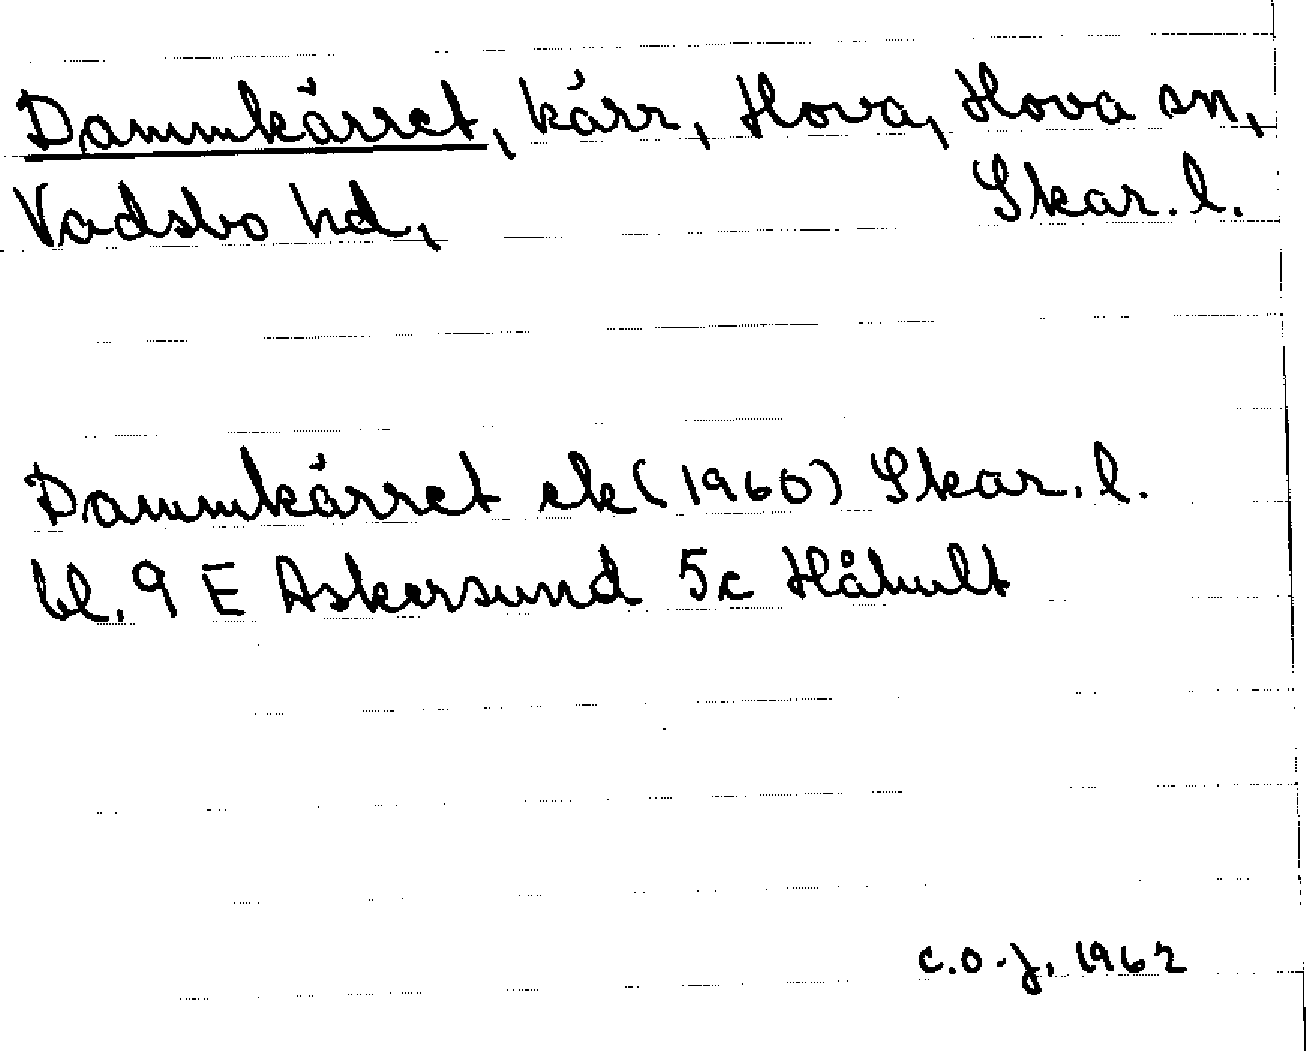 Dammkärret, kärr, Hova, Hova sn,
Vadsbo hd, Skar. l.
Dammkärret ek (1960) Skar. l.
bl. 9 E Askersund 5c Håhult
C.O-J. 1962